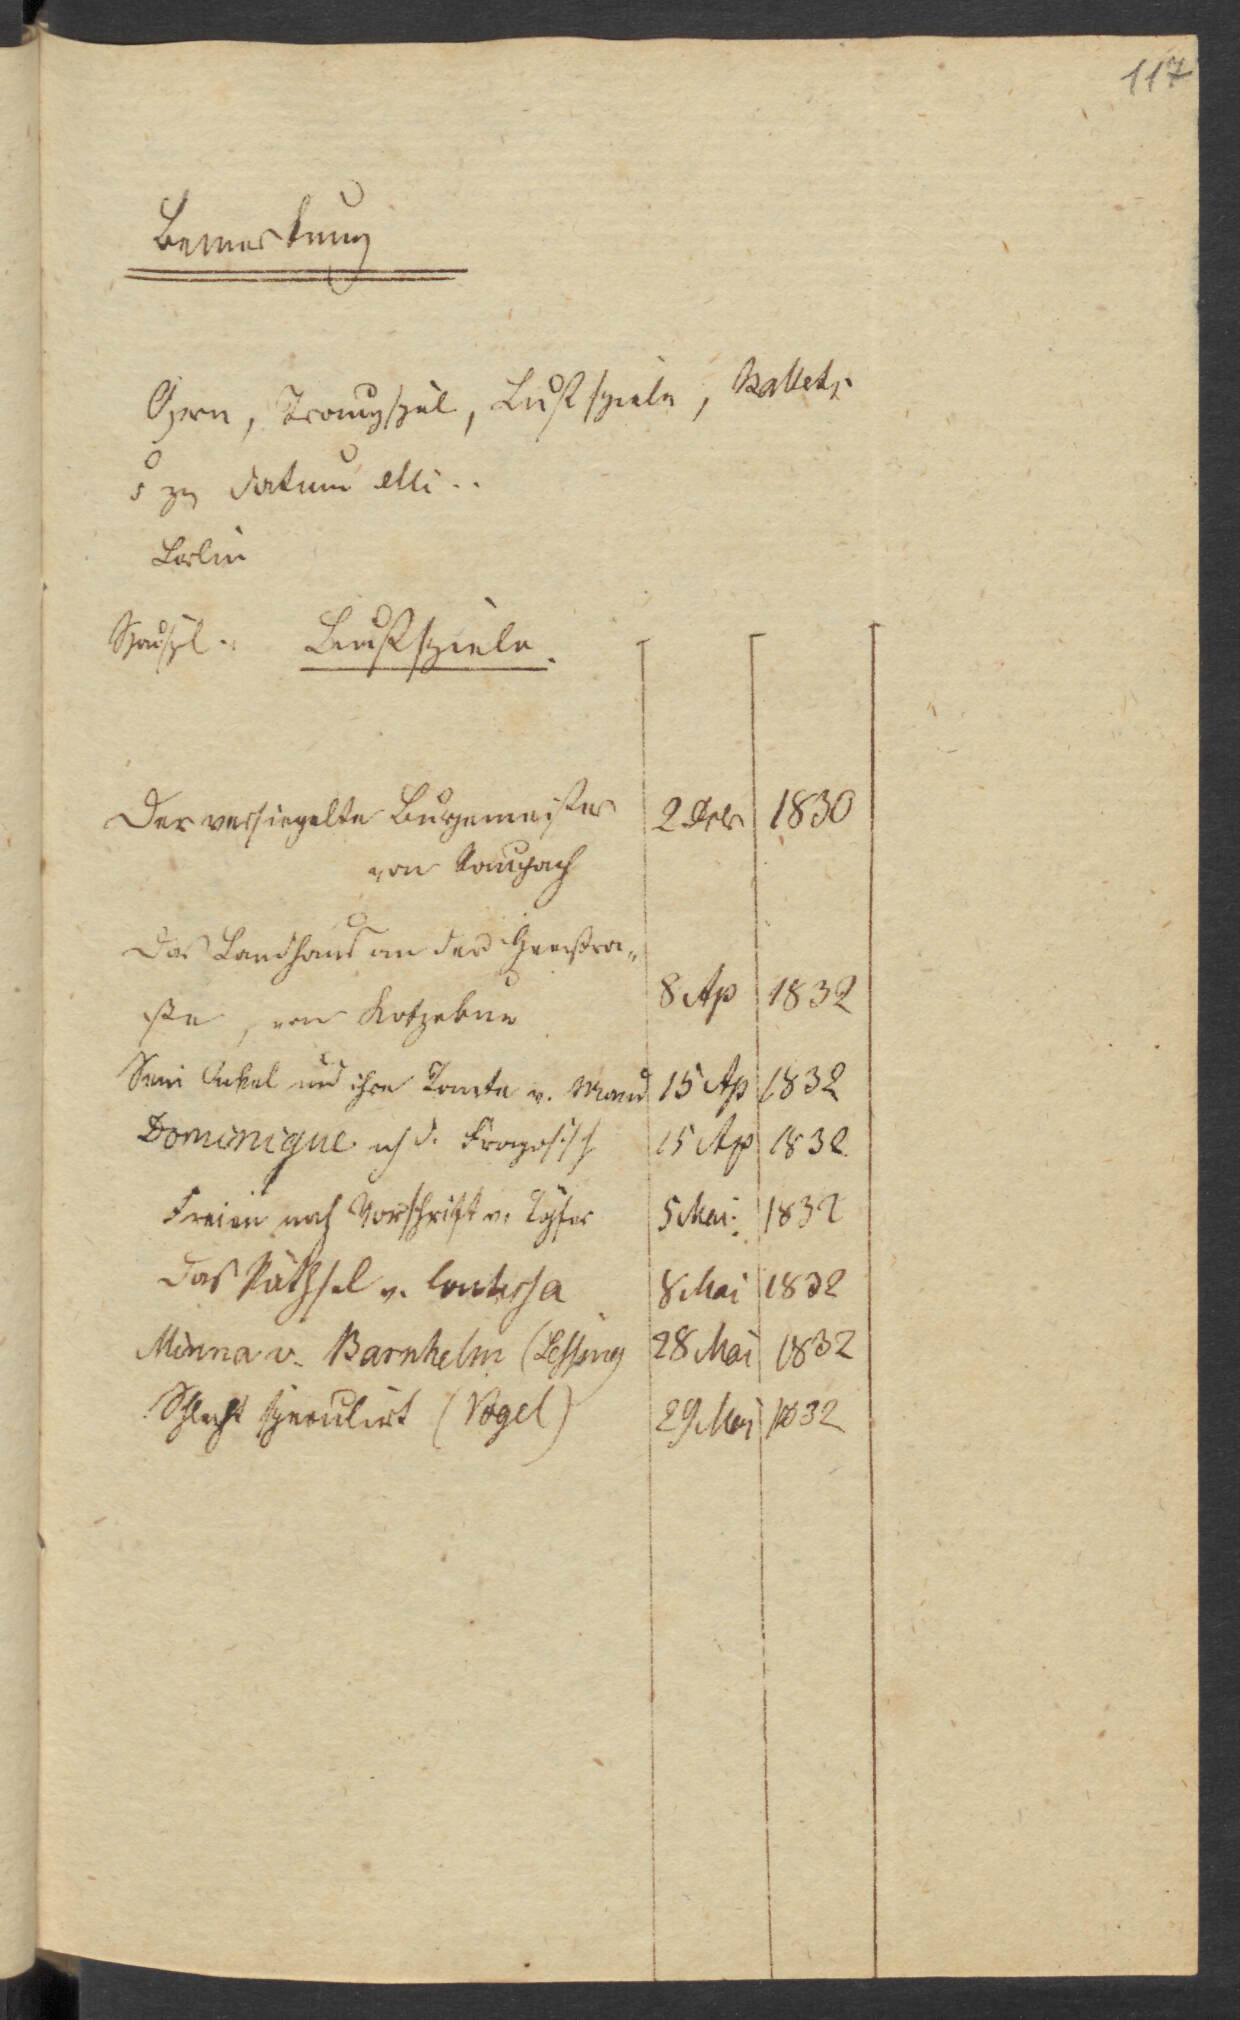 117
Bemerkung
Opern, Trauerspiel, Lustspiele, Ballets
zu datum
Berlin
Schauspl. Lustspiele.
Der versiegelte Burgemeister 2 Dcbr 1830
von Raupach
Das Landhaus an der Heerstra„
ße, von Kotzebue 8 Ap 1832
Onkel und ihre Tante v. 15 Ap 1832
Dominique n d. Französisch 15 Ap 1832
Freien nach Vorschrift v. Töpfer 5 Mai 1832
Das Räthsel v. Contessa 8 Mai 1832
Minna v. Barnhelm (Lessing 28 Mai 1832
Schlecht speculirt (Vogel) 29 Mai 1832